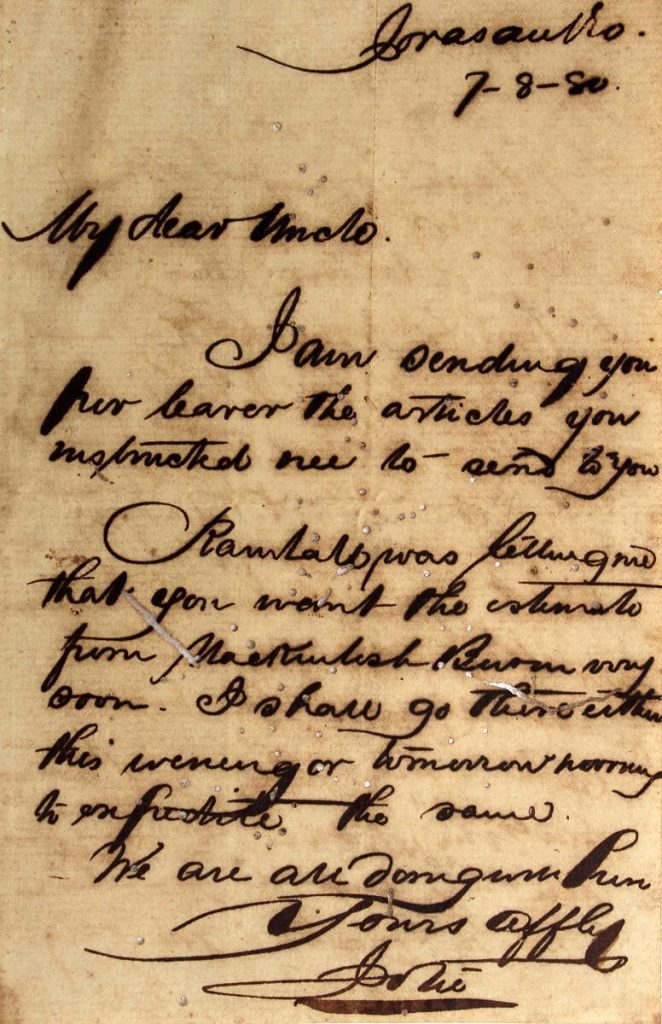 Jorasanko.
7-8-80.
My dear Uncle.
I am sending you
per bearer the articles you
instructed me to send to you
was telling me
that you want the estimate
from Mackintosh Burn very
soon. I shall go there either
this evening or tomorrow morning
to expedite the same.
We are all doing well here
Yours affly
Jotie